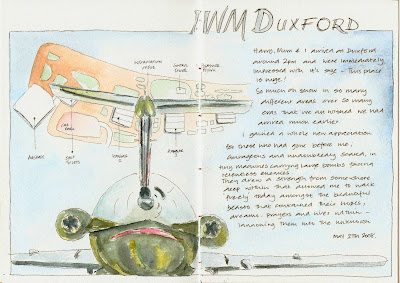 IWM DUXFORD
Harry, Mum & I arrived at Duxford
around 2pm and were immediately
impressed with it's size - this place
is huge!
So much on show in so many
different areas over so many
eras that we all wished we had
arrived much earlier.
I gained a whole new appreciation
for those who had gone before me;
courageous and undoubtedly scared, in
tiny machines carrying large bombs facing
relentless enemies.
They drew a strength from somewhere
deep within that allowed me to walk
freely today amongst the beautiful
beasts that contained their hopes,
dreams, prayers and lives within -
launching them into the unknown
May 27th 2008.
Hangar
3